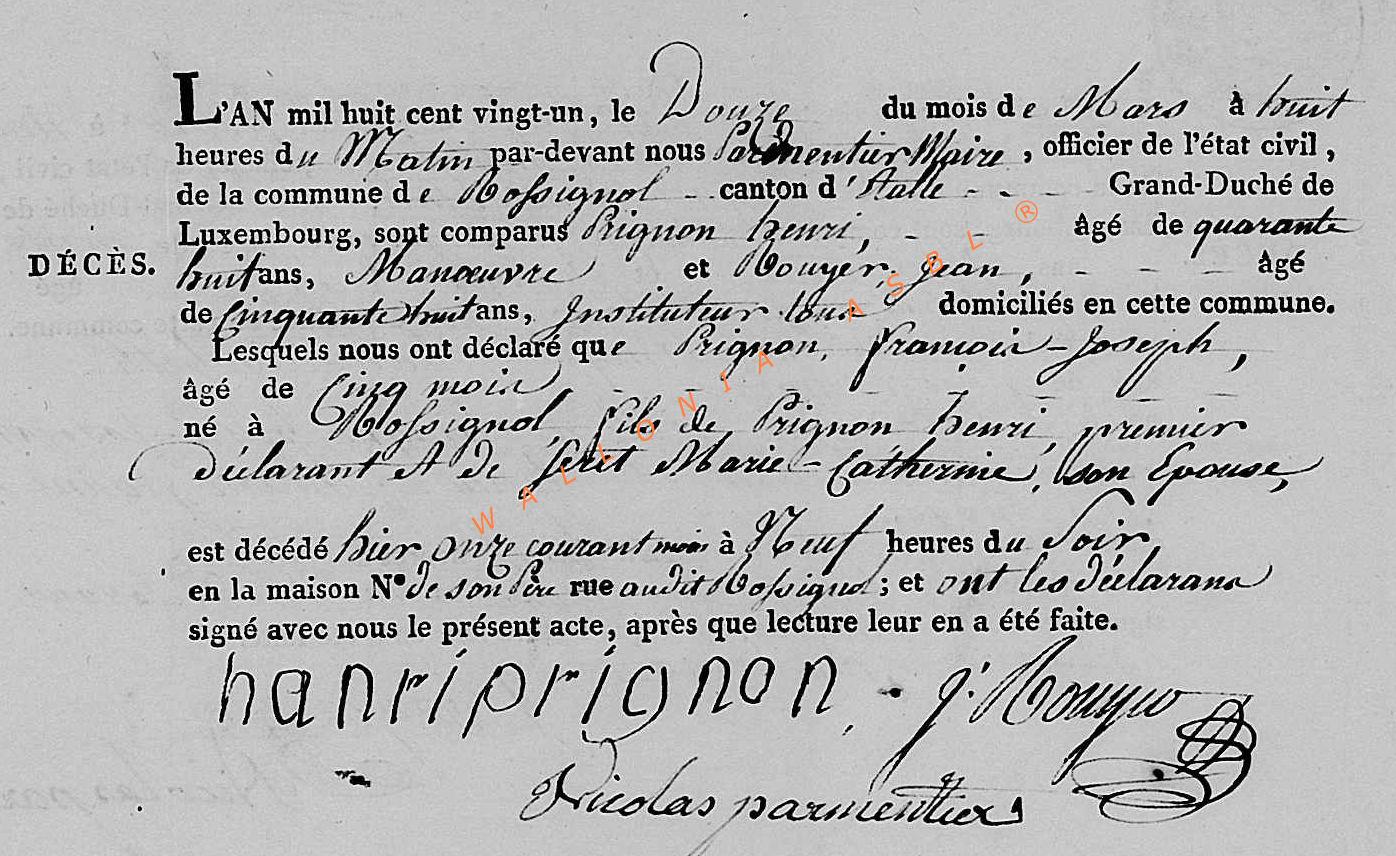 L'AN mil huit cent vingt-un, le Douze du mois de Mars à huit
heures du Matin par-devant nous Parmentier Maire, officier de l'état civil,
de la commune de Rossignol - canton d'Etalle - - - Grand-Duché de
Luxembourg, sont comparus Prignon henri, - - âgé de quarante
DÉCÈS.
huit ans, Manœuvre et Rouyer Jean, - - - âgé
de Cinquante huit ans, Instituteur tous domiciliés en cette commune.
Lesquels nous ont déclaré que Prignon, François-Joseph,
âgé de Cinq mois
né à Rossignol, fils de Prignon henri, premier
déclarant et de Jeret Marie-Catherine, son Epouse,
est décédé hier onze courant mois à Neuf heures du Soir
en la maison N° de son Père rue audit Rossignol; et ont les déclarans
signé avec nous le présent acte, après que lecture leur en a été faite.
hanri prignon J. Rouyer
Nicolas parmentier
WALLONIA ASBL ®